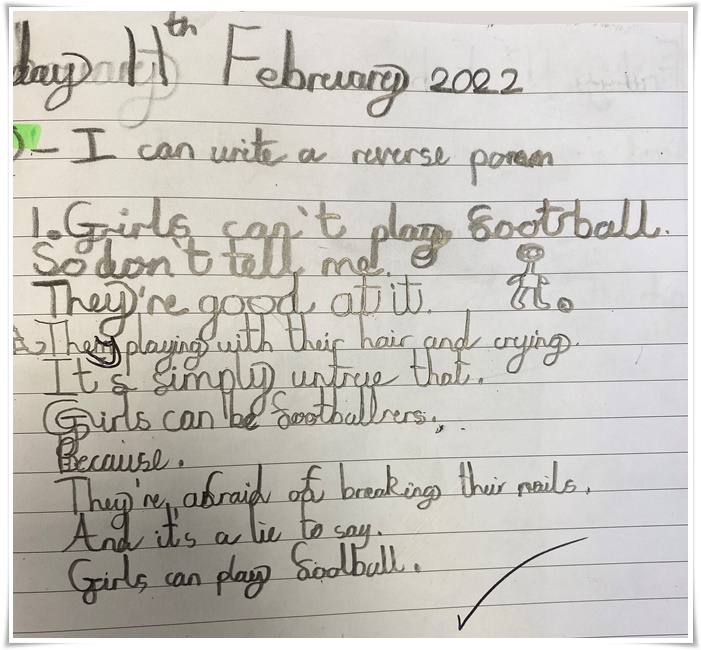 day 11th February 2022
- I can write a reverse poem
1. Girls can't play football.
So don't tell me.
They're good at it.
They playing with their hair and crying.
It's simply untrue that.
Girls can be footballrers.
Because.
They're afraid of breaking their nails.
And it's a lie to say.
Girls can play football.